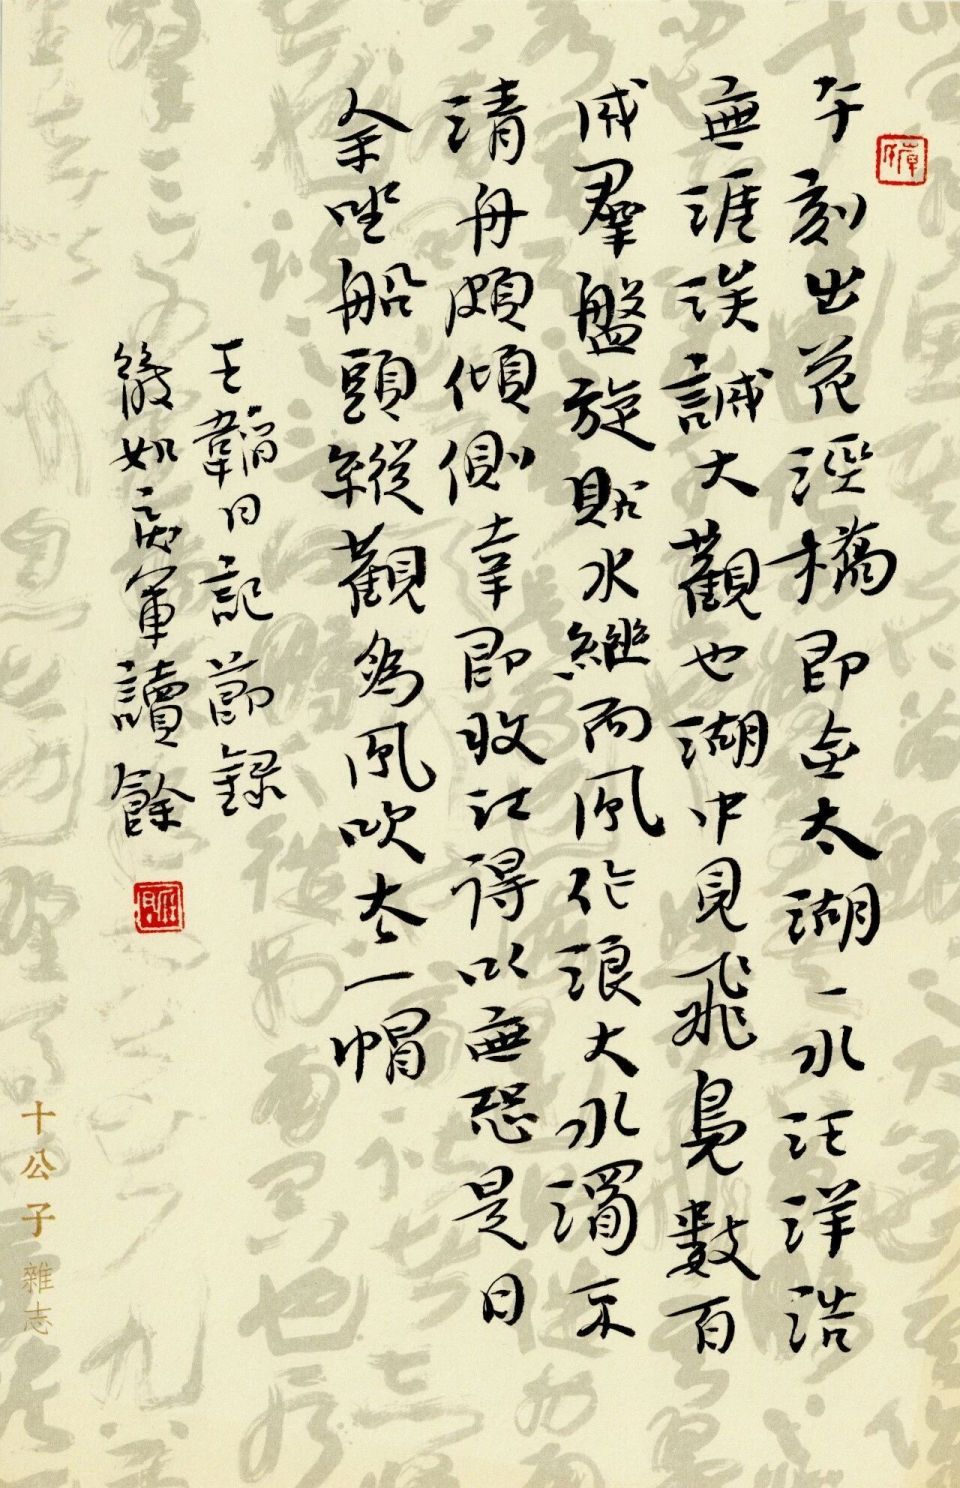 午刻出花涇橋即至太湖一水汪洋浩
無涯涘誠大觀也湖中見飛鳧數百
成羣盤旋貼水繼而風作浪大水濁不
清舟頗傾側幸即收江得以無恐是日
余坐船頭縱觀為風吹去一帽
王韜日記節錄
筱如病軍讀餘
十公子雜志